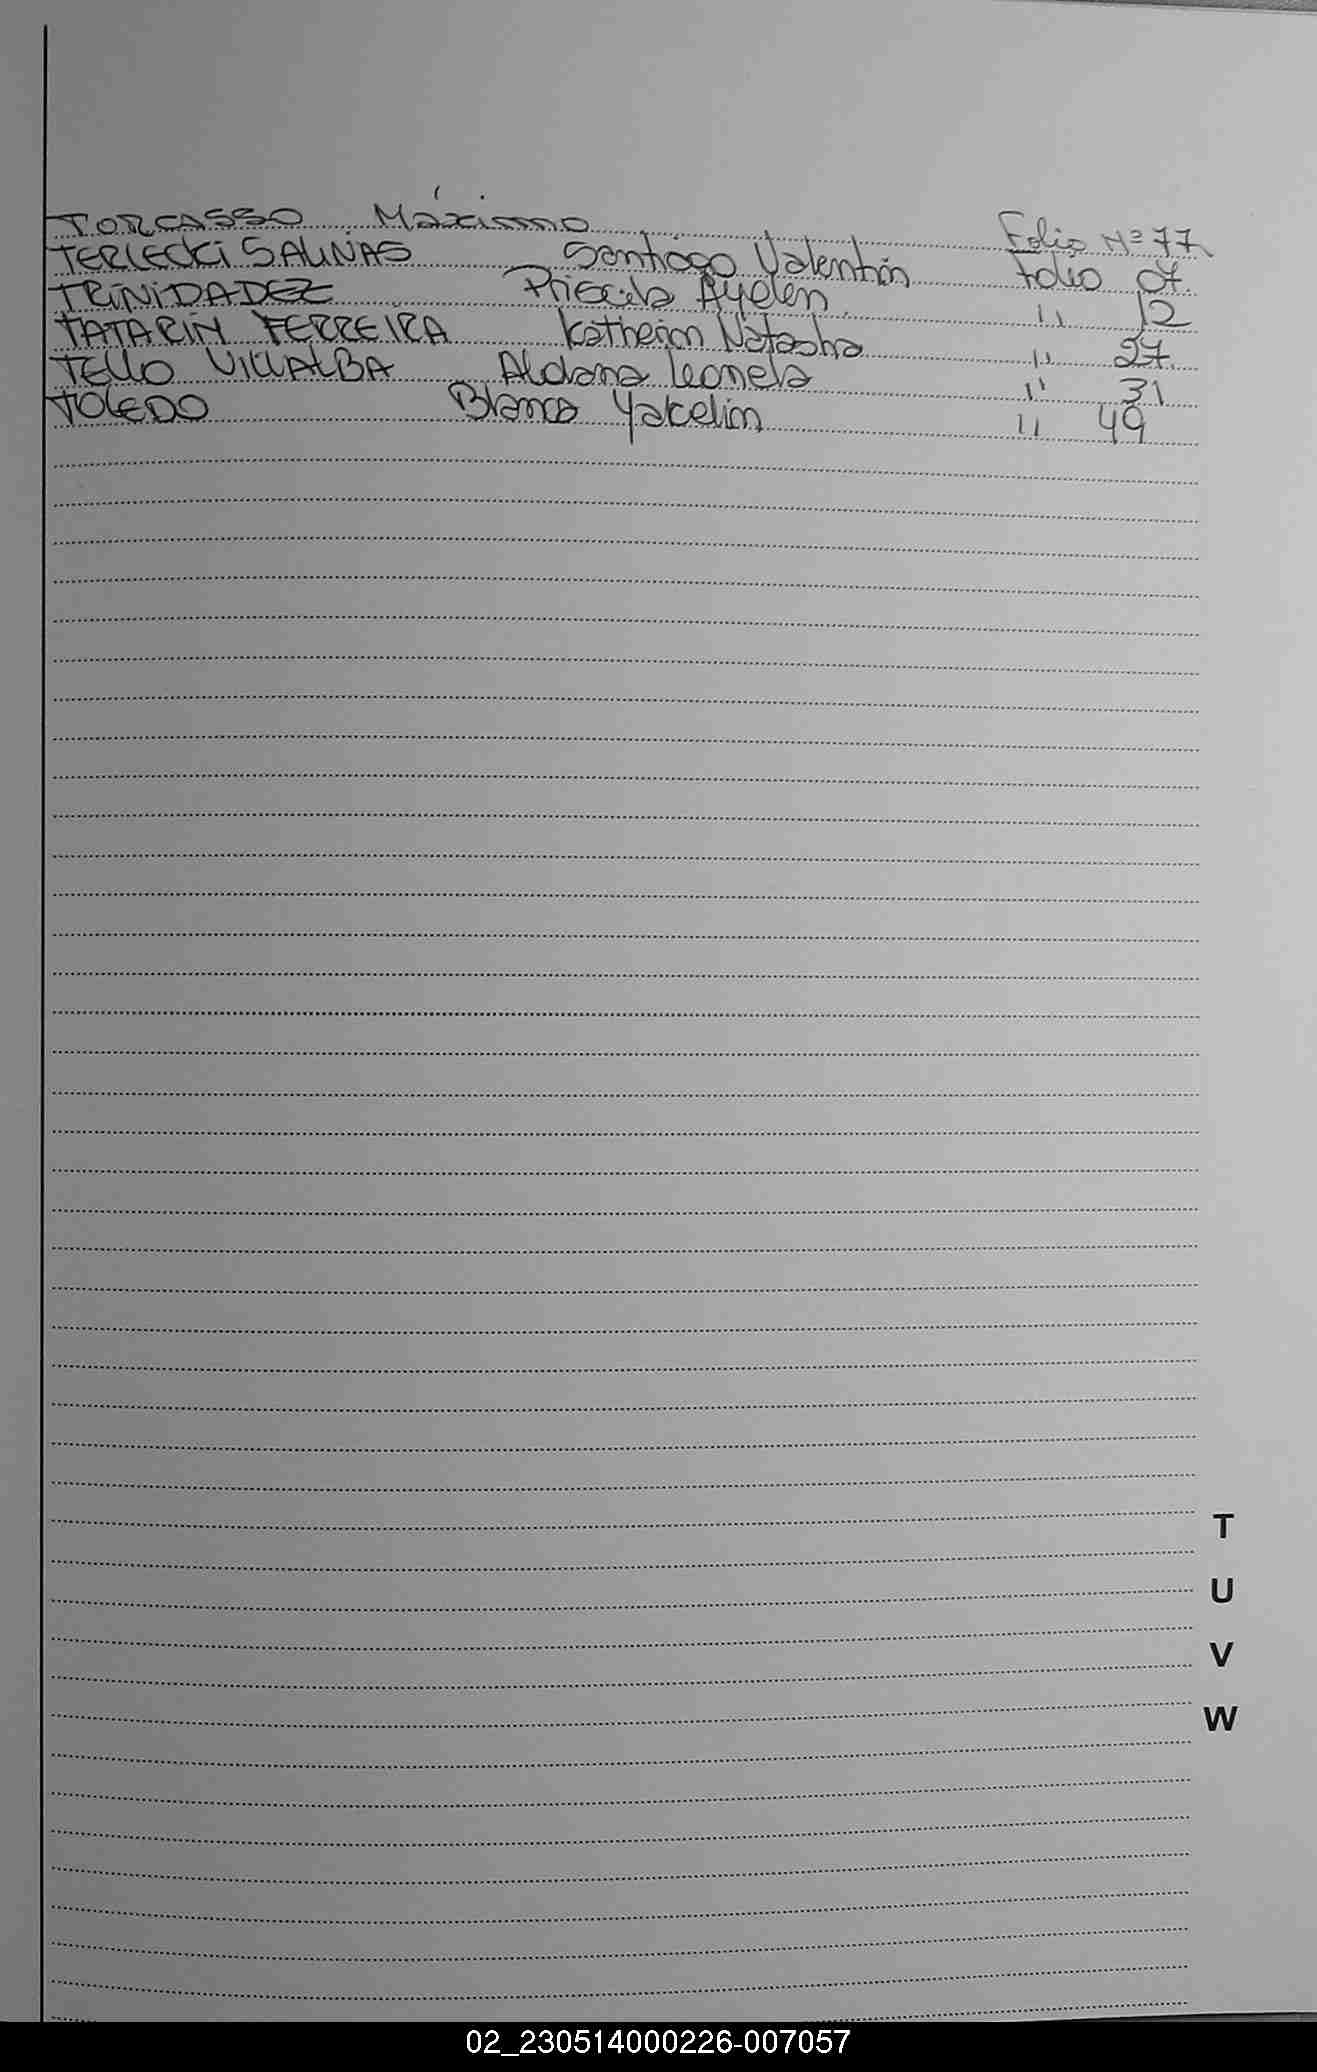 TORCASSO Máximo Folio Nº 77
TERLECKI SALINAS Santiago Valentín Folio 07
TRINIDADEZ Priscila Ayelén " 12
TATARIN FERREIRA Katherin Natasha " 27
TELLO VILLALBA Aldana Leonela " 31
TOLEDO Blanca Yakelin " 49
T
U
V
W
02_230514000226-007057